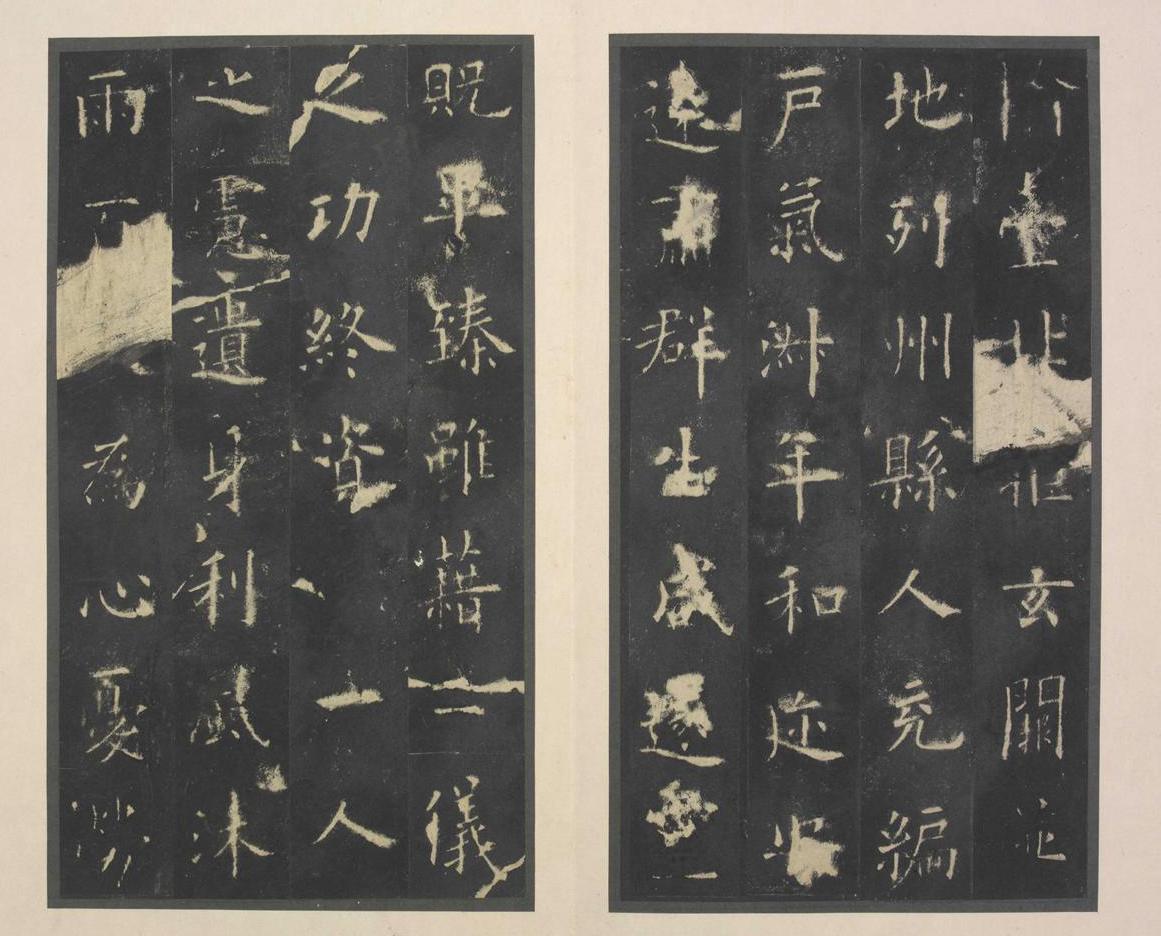 臺北玄闕並
地列州縣人充編
戶氣淑年和迩安
遠肅群生咸遂
貺畢臻雖藉二儀
之功終資一人
之慮遺身利風沐
雨百為心憂勞